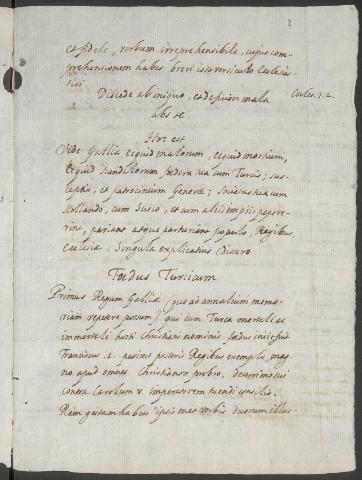 et fidele, verbum irreprehensibile, cujus com-
prehensionem habes brevi isto versiculo Ecclesias-
tici
Discede ab iniquo, et deficient mala Eccles. 7. 2.
abs te
Hoc est
Vide Gallia ecquid malorum, ecquid mortium,
ecquid scandalorum foedera tua cum Turcis; sus-
ceptis, et patrocinium Genevæ; Societas tua cum
Hollando, cum Sueco, et cum aliis impiis pepere-
rint, pariant atque parturiant populo, Regibus,
Ecclesiæ. Singula explicatius edissero
Foedus Turcicum
Primus Regum Galliæ (quo ad annalium memo-
riam repetere possum) qui cum Turca mortali ac
immortali hosti Christiani nominis foedus iniit fuit
Franciscus 1. pessimo posteris Regibus exemplo, mag-
no apud omnes Christianos probro,
contra Carolum V. imperatorem
Rem gestam habes ipsis met verbis duorum illus-